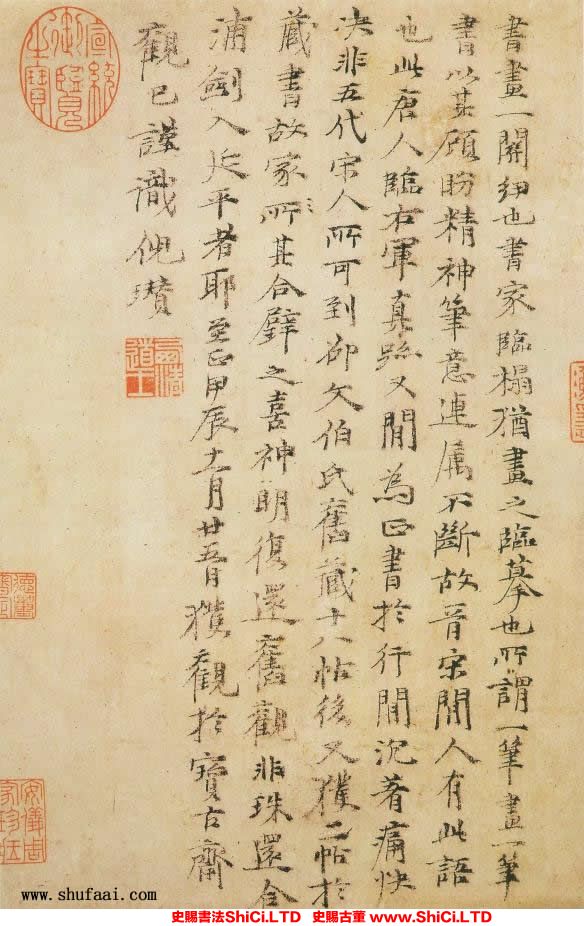 書畫一關紐也書家臨搨猶畫之臨摹也所謂一筆畫一筆
書以其顧盼精神筆意連属不斷故晉宋間人有此語
也此唐人臨右軍真跡又間為正書於行間沉著痛快
决非五代宋人所可到邵文伯氏舊藏十八帖後又獲二帖於
藏書故家所其合璧之喜神明復還舊觀非珠還合
浦劍入延平者耶至正甲辰十一月廿五日獲觀於寶古齋
觀已謹識倪瓚
宣統御覽之寶
安儀周家珍藏
www.shufaai.com
史賜書法ShiCi.LTD 史賜古董 www.ShiCi.LTD